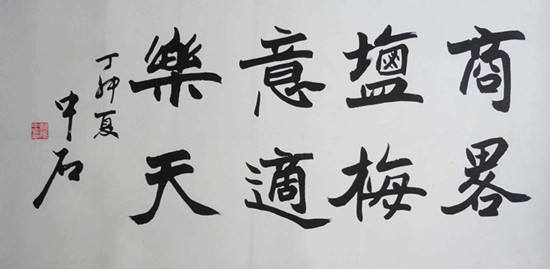 商畧
鹽梅
意適
樂天
丁卯夏
中石